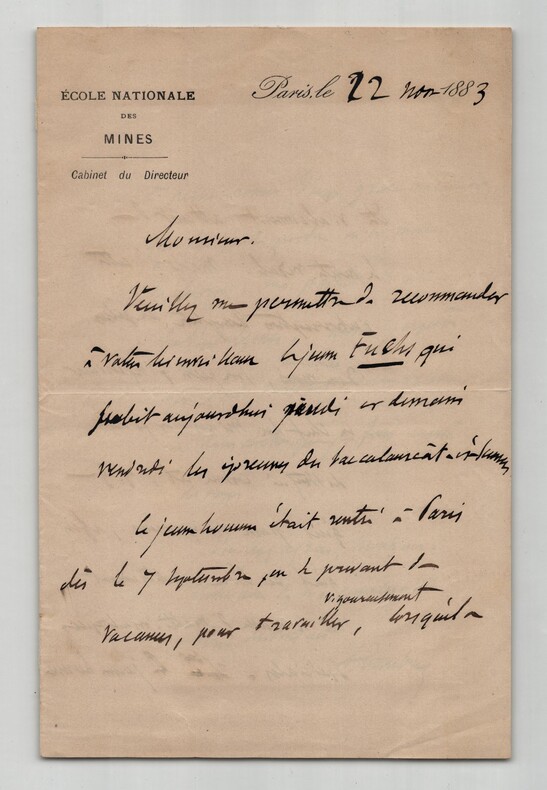 ÉCOLE NATIONALE
DES
MINES
Cabinet du Directeur
Paris, le 22 nov 1883
Monsieur.
Veuillez me permettre de recommander
à votre bienveillance le jeune Fuchs qui
subit aujourdhui jeudi et demain
vendredi les épreuves du baccalauréat-ès-sciences
le jeune homme était rentré à Paris
dès le 7 septembre, en se privant de
vigoureusement
vacances, pour travailler, lorsqu'il a